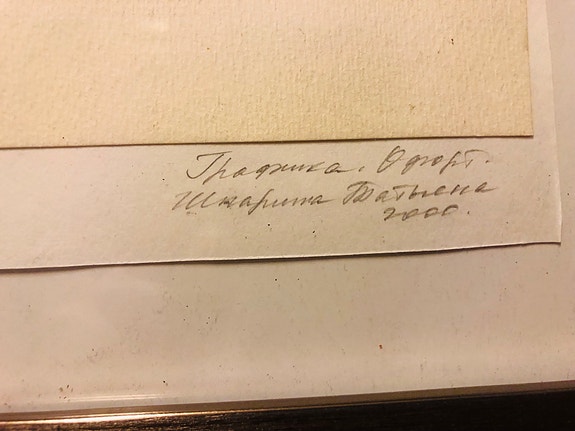 Графика. Офорт.
Шкарина Татьяна
2000.